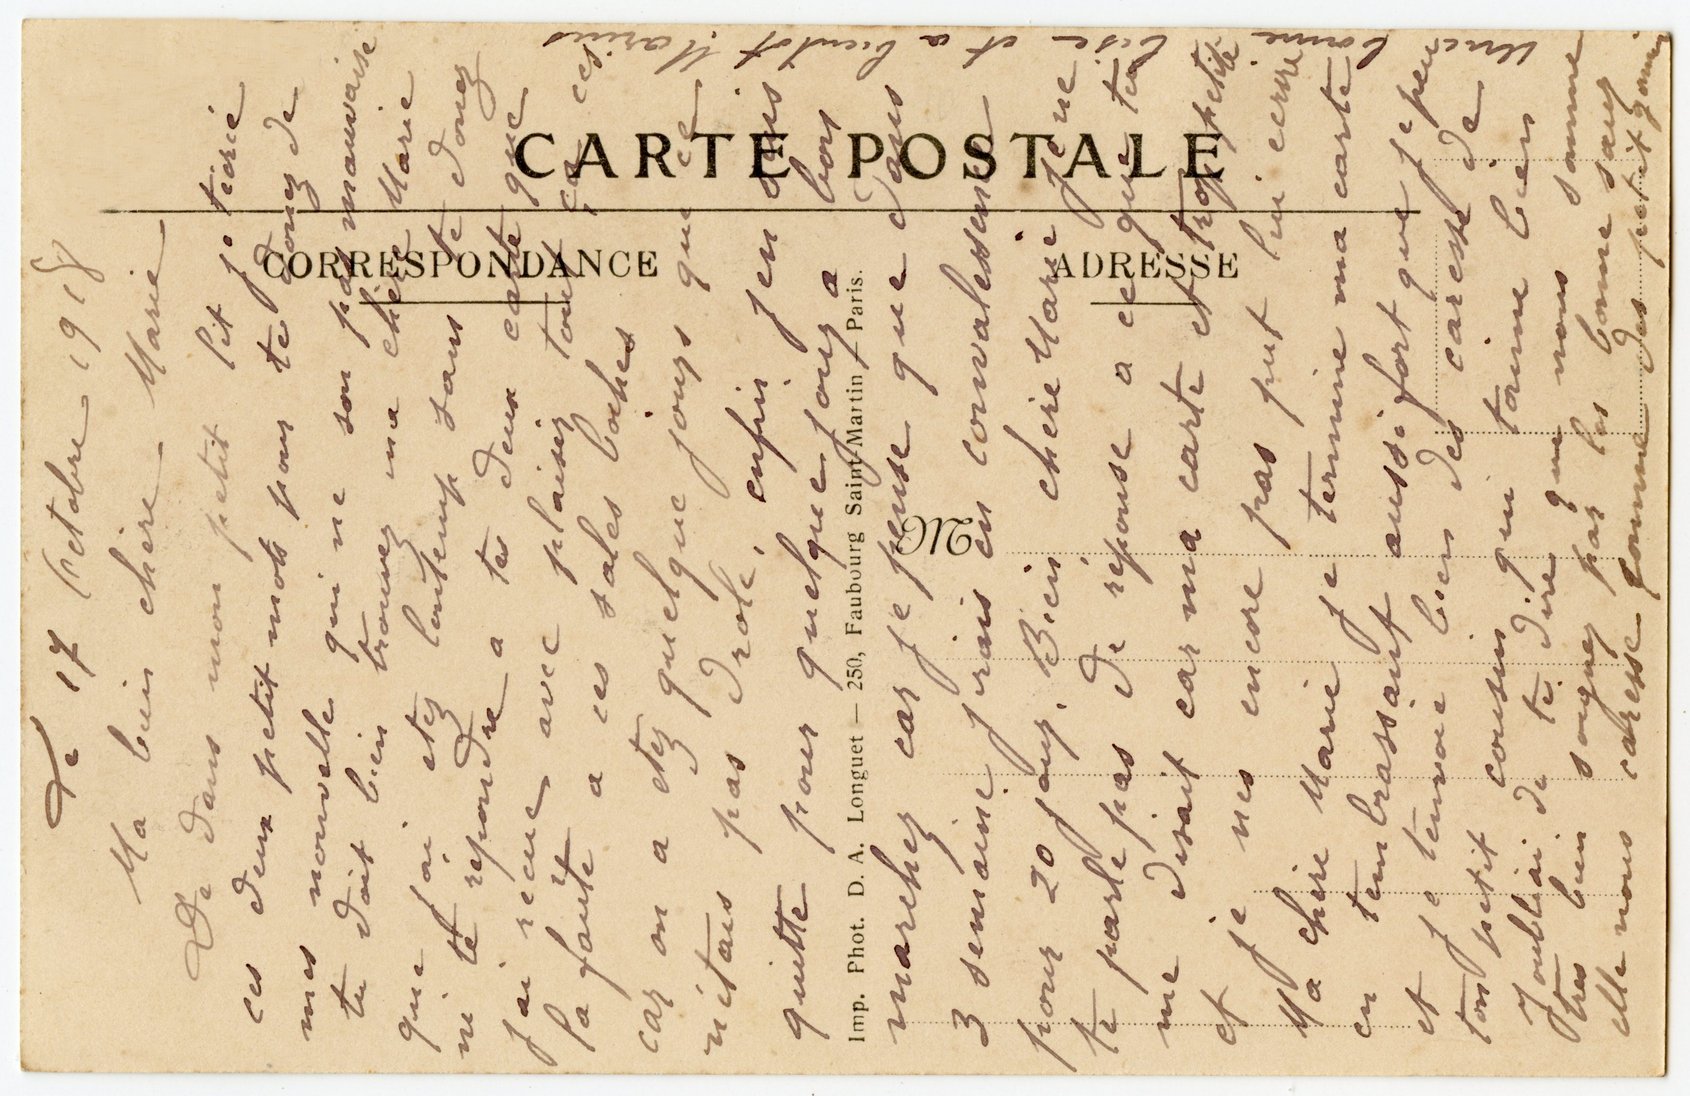 CARTE POSTALE
CORRESPONDANCE
ADRESSE
M
Imp. Phot. D. A. Longuet — 250, Faubourg Saint-Martin — Paris.
Le 17 Octobre 1918
Ma bien chère Marie
De dans mon petit lit je
ces deux petit mots pour te donez de
mes nouvelle qui ne son pas mauvaise
tu doit bien trouvez ma chère Marie
que j'ai etez lontemp sans te donez
ni te repondre a tes deux carte que
j'ai recue avec plaisir tout ça ces
la faute a ces sales boches
car on a etez quelque jours que ce
n'etais pas drole, enfin j'en suis
quitte pour quelque jours a bors
marchez car je pense que dans
3 semaine j'irais en convalessence
pour 20 jour. Bien chère Marie je ne
te parle pas de reponse a ce que tu
me disait car ma carte et trop petite
et je nes encore pas put lui ecrire
Ma chère Marie je termine ma carte
en tembrassant aussi fort que je peu
et je tenvoie bien des caresse de
ton petit cousin qui taime bien
J'oubliai de te dire que nous somme
tres bien soignez par les bonne sœur
elle nous caresse comme des petit gamin
Une bonne bise et a bientot Marius